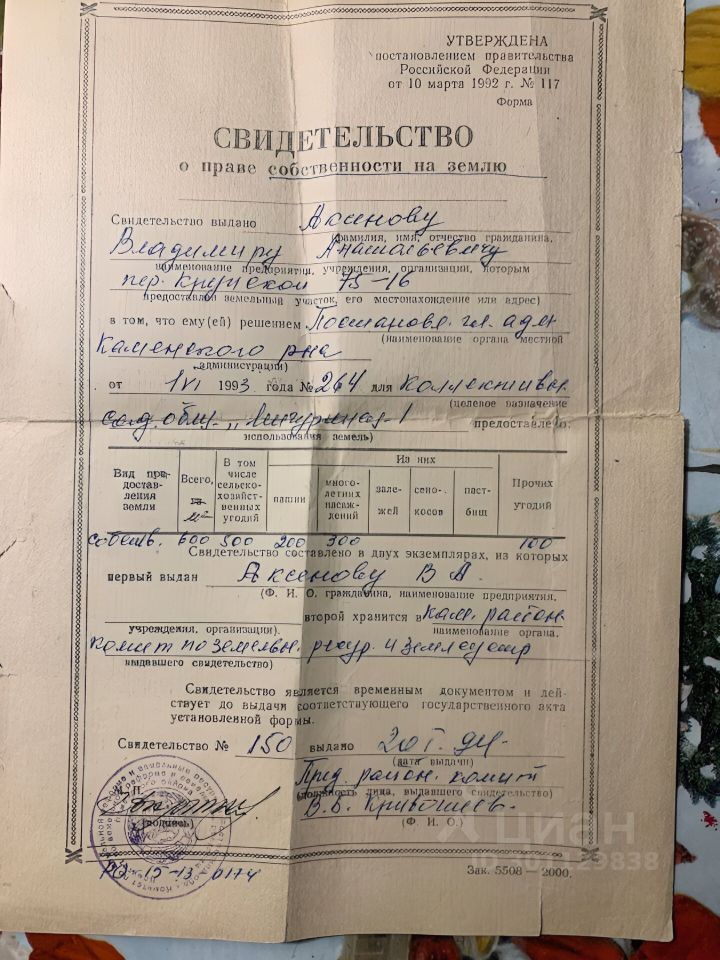 УТВЕРЖДЕНА
постановлением правительства
Российской Федерации
от 10 марта 1992 г. № 117
Форма
СВИДЕТЕЛЬСТВО
о праве собственности на землю
Свидетельство выдано Аксенову
(фамилия, имя, отчество гражданина,
Владимиру Анатольевичу
наименование предприятия, учреждения, организации, которым
пер. Крупской 75-16
предоставлен земельный участок, его местонахождение или адрес)
в том, что ему(ей) решением Постановл. гл. адм
(наименование органа местной
Каменского р-на
администрации)
от 1 VI 1993 года № 264 для коллективн.
(целевое назначение
сад. общ. предоставлено:
использования земель)
Вид предоставления земли
Всего, га м²
В том числе сельскохозяйственных угодий
Из них
пашни
многолетних насаждений
залежей
сенокосов
пастбищ
Прочих угодий
собств. 600 500 200 300 100
Свидетельство составлено в двух экземплярах, из которых
первый выдан Аксенову В А.
(Ф. И. О. гражданина, наименование предприятия,
второй хранится в Кам. район
учреждения, организации). наименование органа,
комит по земельн. ресур. и землеустр
выдавшего свидетельство)
Свидетельство является временным документом и дей-
ствует до выдачи соответствующего государственного акта
установленной формы.
Свидетельство № 150 выдано
(дата выдачи)
Пред. район. комит
(должность лица, выдавшего свидетельство)
М. П.
(подпись)
В.В.
(Ф. И. О.)
Зак. 5508 — 2000.
Циан